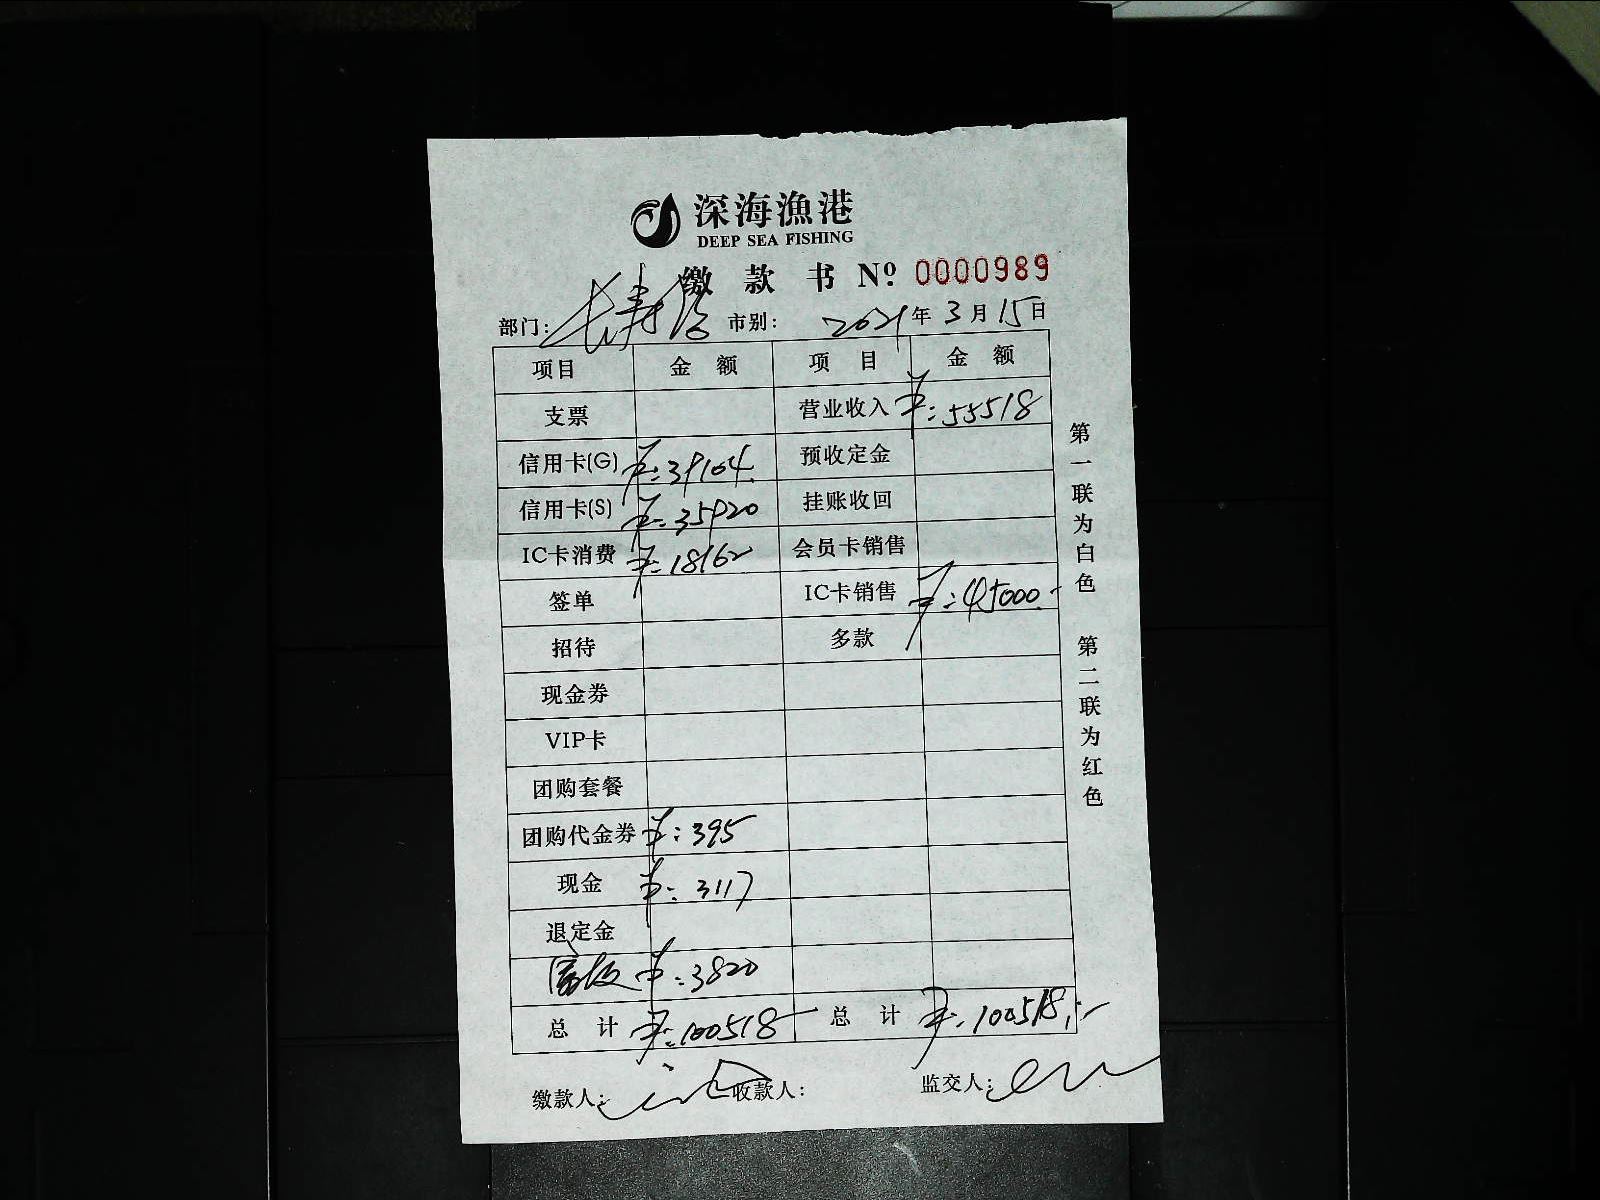 深海漁港
DEEP SEA FISHING
缴款书 Nº: 0000989
部门: 长寿路 市别: 2021年3月15日
项目 金额 项目 金额
支票 营业收入 ¥:55518
信用卡(G) ¥:39104 预收定金
信用卡(S) ¥:35920 挂账收回
IC卡消费 ¥:18162 会员卡销售
签单 IC卡销售 ¥:45000.-
招待 多款
现金券
VIP卡
团购套餐
团购代金券 ¥:395
现金 ¥:3117
退定金
¥:3820
总计 ¥:100518 总计 ¥:100518.-
缴款人: 收款人: 监交人:
第一联为白色 第二联为红色